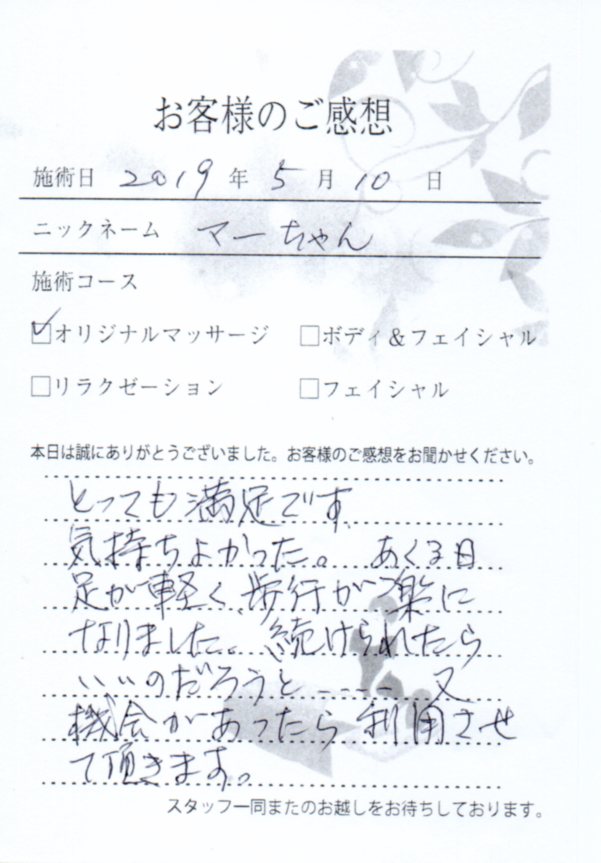 お客様のご感想
施術日 2019 年 5 月 10 日
ニックネーム マーちゃん
施術コース
☑オリジナルマッサージ □ボディ&フェイシャル
□リラクゼーション □フェイシャル
本日は誠にありがとうございました。お客様のご感想をお聞かせください。
とっても満足です
気持ちよかった。 あくる日
足が軽く、歩行が楽に
なりました。続けられたら
いいのだろうと---- 又
機会があったら利用させ
て頂きます。
スタッフ一同またのお越しをお待ちしております。